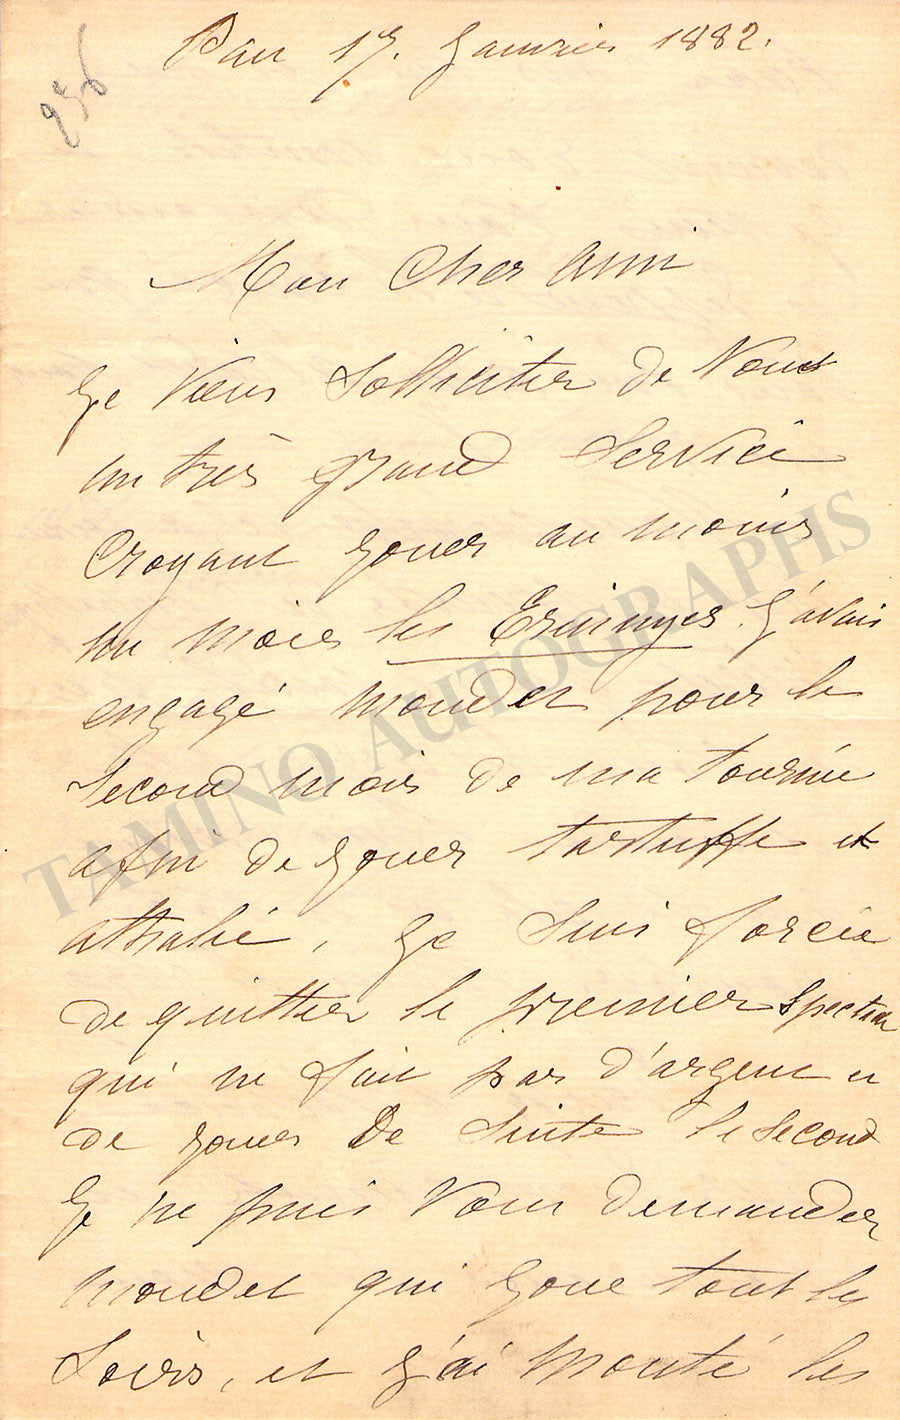 Pau 17. Janvier 1882.
256
Mon Cher Ami
Je viens Solliciter de Vous
un très grand Service
Croyant jouer au moins
un mois les Erinnyes. J'avais
engagé moudet pour le
Second mois de ma tournée
afin de jouer tartuffe et
athalie, je Suis forcée
de quitter le premier spectacle
qui ne fait pas d'argent et
de jouer De Suite le second
Je ne puis Vous demander
moudet qui joue tout les
Soirs, et j'ai monté les
TAMINO AUTOGRAPHS